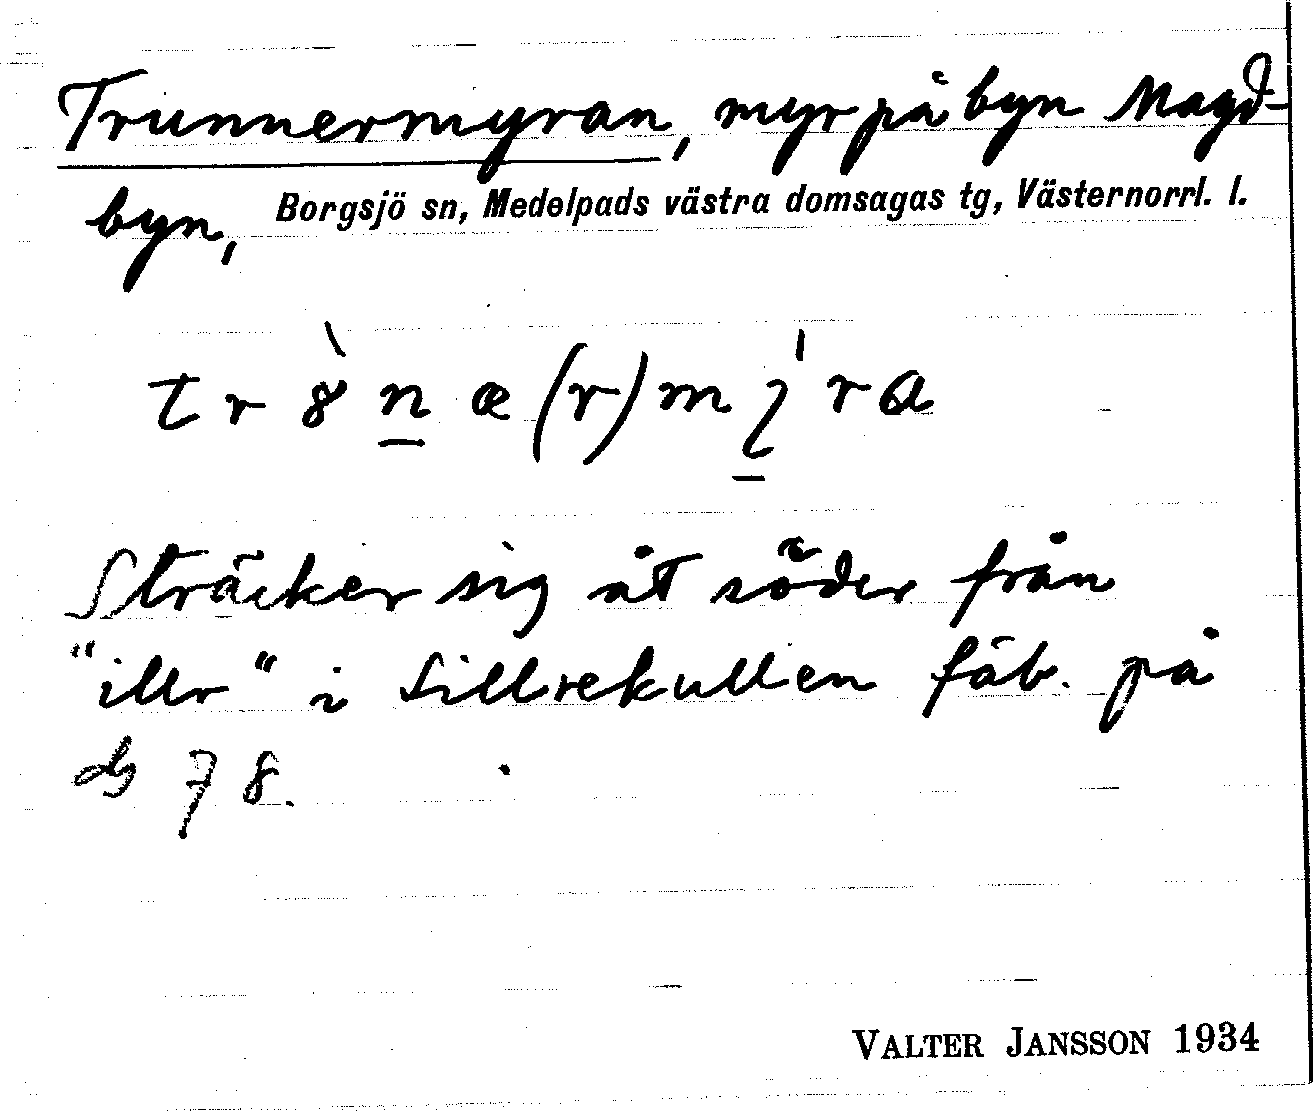 Trunnermyran, myr på byn Magd-
byn, Borgsjö sn, Medelpads västra domsagas tg, Västernorrl. l.
tr8̀n̲æ(r)mı̲́ra
Sträcker sig åt söder från
"illr" i Lillrekullen fäb. på
db 78.
VALTER JANSSON 1934